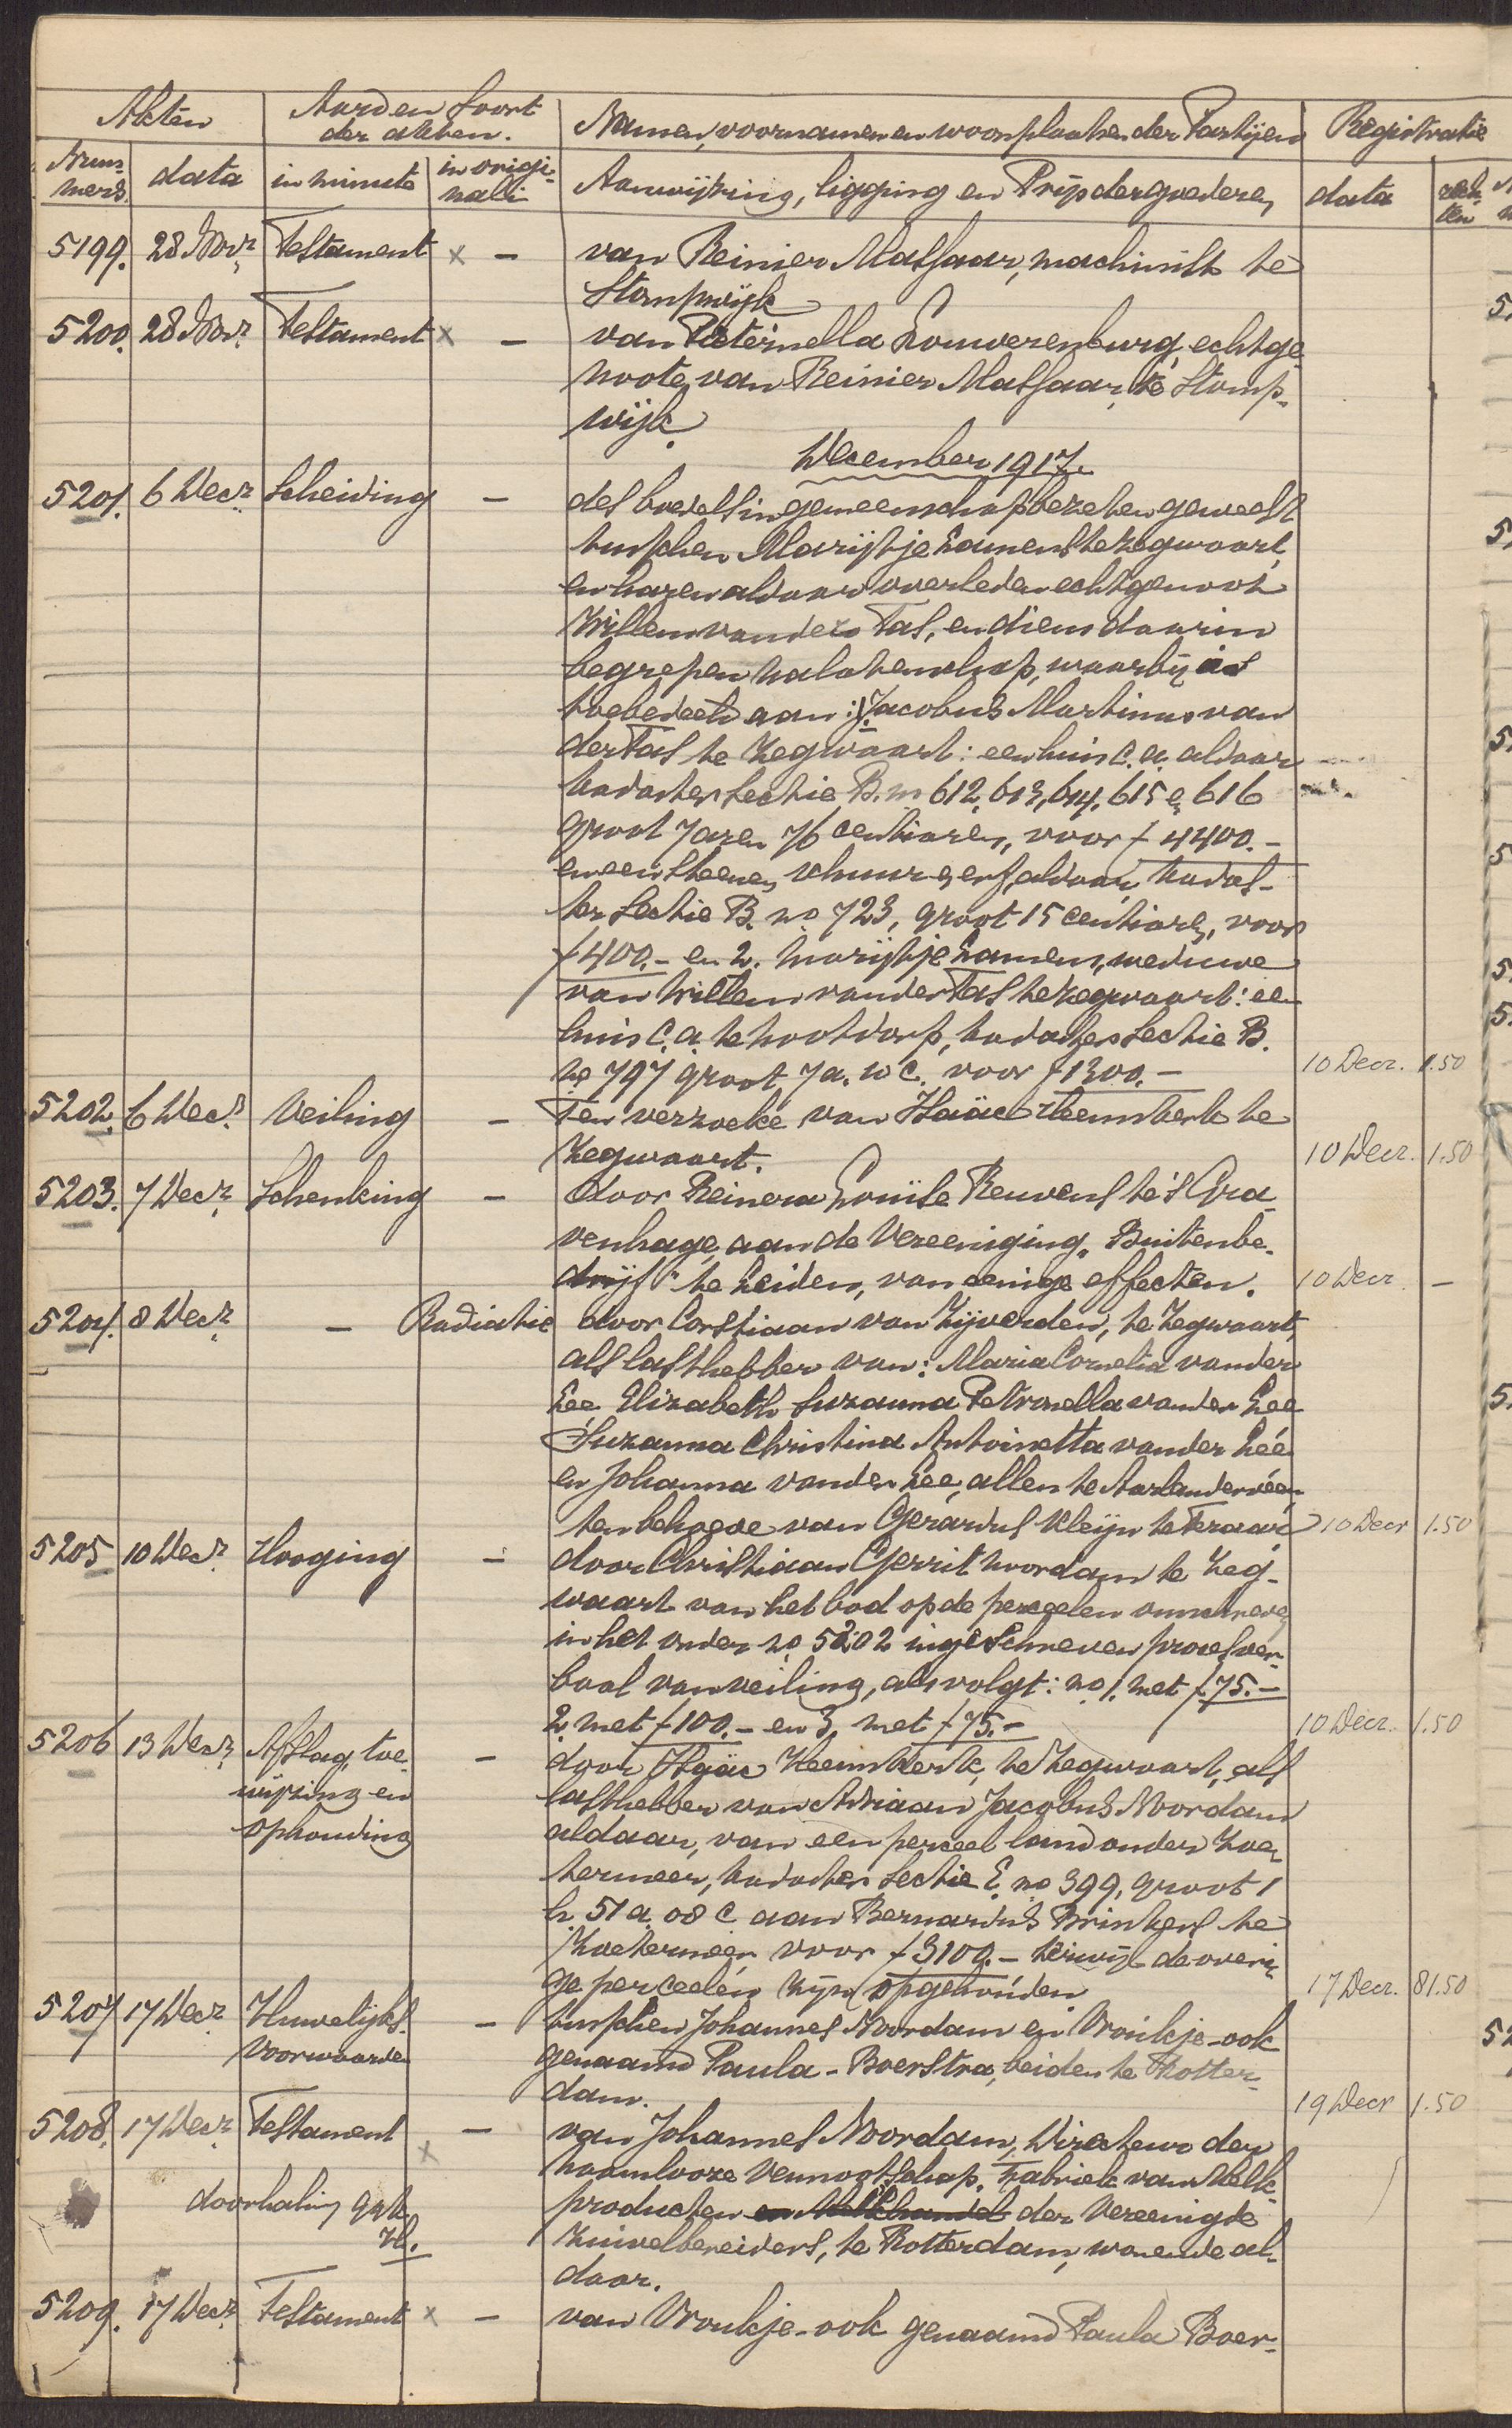 Akten
Aard en Soort der akten.
Namen, voornamen en woonplaatsen der Partijen
Registratie
Nummers
data
in minute
in originali
Aanwijzing, ligging en Prijs der goederen
data
rech
ten
5199. 28 Novr Testament x — van Reinier Massaar, machinist te
Stompwijk
5200. 28 Novr. Testament x — van Pieternella Kouwerenburg, echtge
noote van Reinier Massaar, te Stomp-
wijk.
December 1917.
5201. 6 Decr. Scheiding — des boedels in gemeenschap bezeten geweest
tusschen Marijtje Lamens te Zegwaart,
en haren aldaar overleden echtgenoot
Willem van der Tas, en diens daarin
begrepen nalatenschap, waarbij is
toebedeeld aan: 1. Jacobus Martinus van
der Tas te Zegwaart: een huis c.a. aldaar
kadaster Sectie B. no 612, 613, 614, 615 en 616
groot 7 aren 76 centiaren, voor f 4400.-
en een steenen schuur en erf, aldaar, kadas-
ter Sectie B. no 723, groot 15 centiaren, voor
f 400.- en 2. Marijtje Lamens, weduwe
van Willem van der Tas te Zegwaart: een
huis c.a. te Nootdorp, kadaster Sectie B.
no 797 groot 7 a. 10 c. voor f 1300.- 10 Decr. 1.50
5202. 6 Decr. Veiling — Ten verzoeke van Isaäc Heemskerk te
Zegwaart. 10 Decr. 1.50
5203. 7 Decr. Schenking — door Reinera Louise Reuvens te 's Gra
venhage, aan de Vereeniging „Buitenbe-
drijf" te Leiden, van eenige effecten. 10 Decr. —
5204. 8 Decr. — Radiatie door Corstiaan van Zijverden, te Zegwaart,
als lasthebber van: Maria Cornelia van der
Lee, Elizabeth Suzanna Petronella van der Lee
Suzanna Christina Antoinetta van der Lee
en Johanna van der Lee, allen te Aarlanderveen,
ten behoeve van Gerardus Kleijn te Teraar 10 Decr 1.50
5205 10 Decr. Hooging — door Christiaan Gerrit Noordam te Zeg-
waart van het bod op de perceelen omschreven
in het onder no 5202 ingeschreven proces ver-
baal van veiling, als volgt: no 1. met f 75.-
2. met f 100.- en 3. met f 75.- 10 Decr. 1.50
5206 13 Decr. Afslag, toe-
wijzing en
ophouding — door Isaäc Heemskerk, te Zegwaart, als
lasthebber van Adriaan Jacobus Noordam
aldaar, van een perceel land onder Zoe
termeer, kadaster Sectie E. no 399, groot 1
h. 51 a. 08 c aan Bernardus Brinkers te
Zoetermeer voor f 3100.- terwijl de overi
ge perceelen zijn opgehouden. 17 Decr. 81.50
5207 17 Decr. Huwelijks-
voorwaarden — tusschen Johannes Noordam en Vroukje-ook
genaamd Paula-Boerstra, beiden te Rotter-
dam. 19 Decr 1.50
5208. 17 Decr. Testament x — van Johannes Noordam, Directeur der
naamlooze Vennootschap, Fabriek van Melk-
doorhaling gek. producten en Melkhandel der Vereenigde
H. Zuivelbereiders, te Rotterdam, wonende al-
daar.
5209. 17 Decr. Testament x — van Vroukje-ook genaamd Paula Boer-